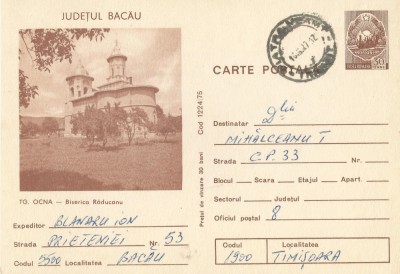 JUDEȚUL BACĂU
TG. OCNA — Biserica Răducanu
Expeditor BLANARU ION
Strada PRIETENIEI Nr. 53
Codul 5500 Localitatea BACĂU
Cod 1224-75
Prețul de vinzare 30 bani
CARTE POȘTALĂ
50
Destinatar Dlui
MIHĂLCEANU T
Strada C.P. 33 Nr.
Blocul Scara Etajul Apart.
Sectorul Județul
Oficiul poștal 8
Codul Localitatea
1900 TIMIȘOARA